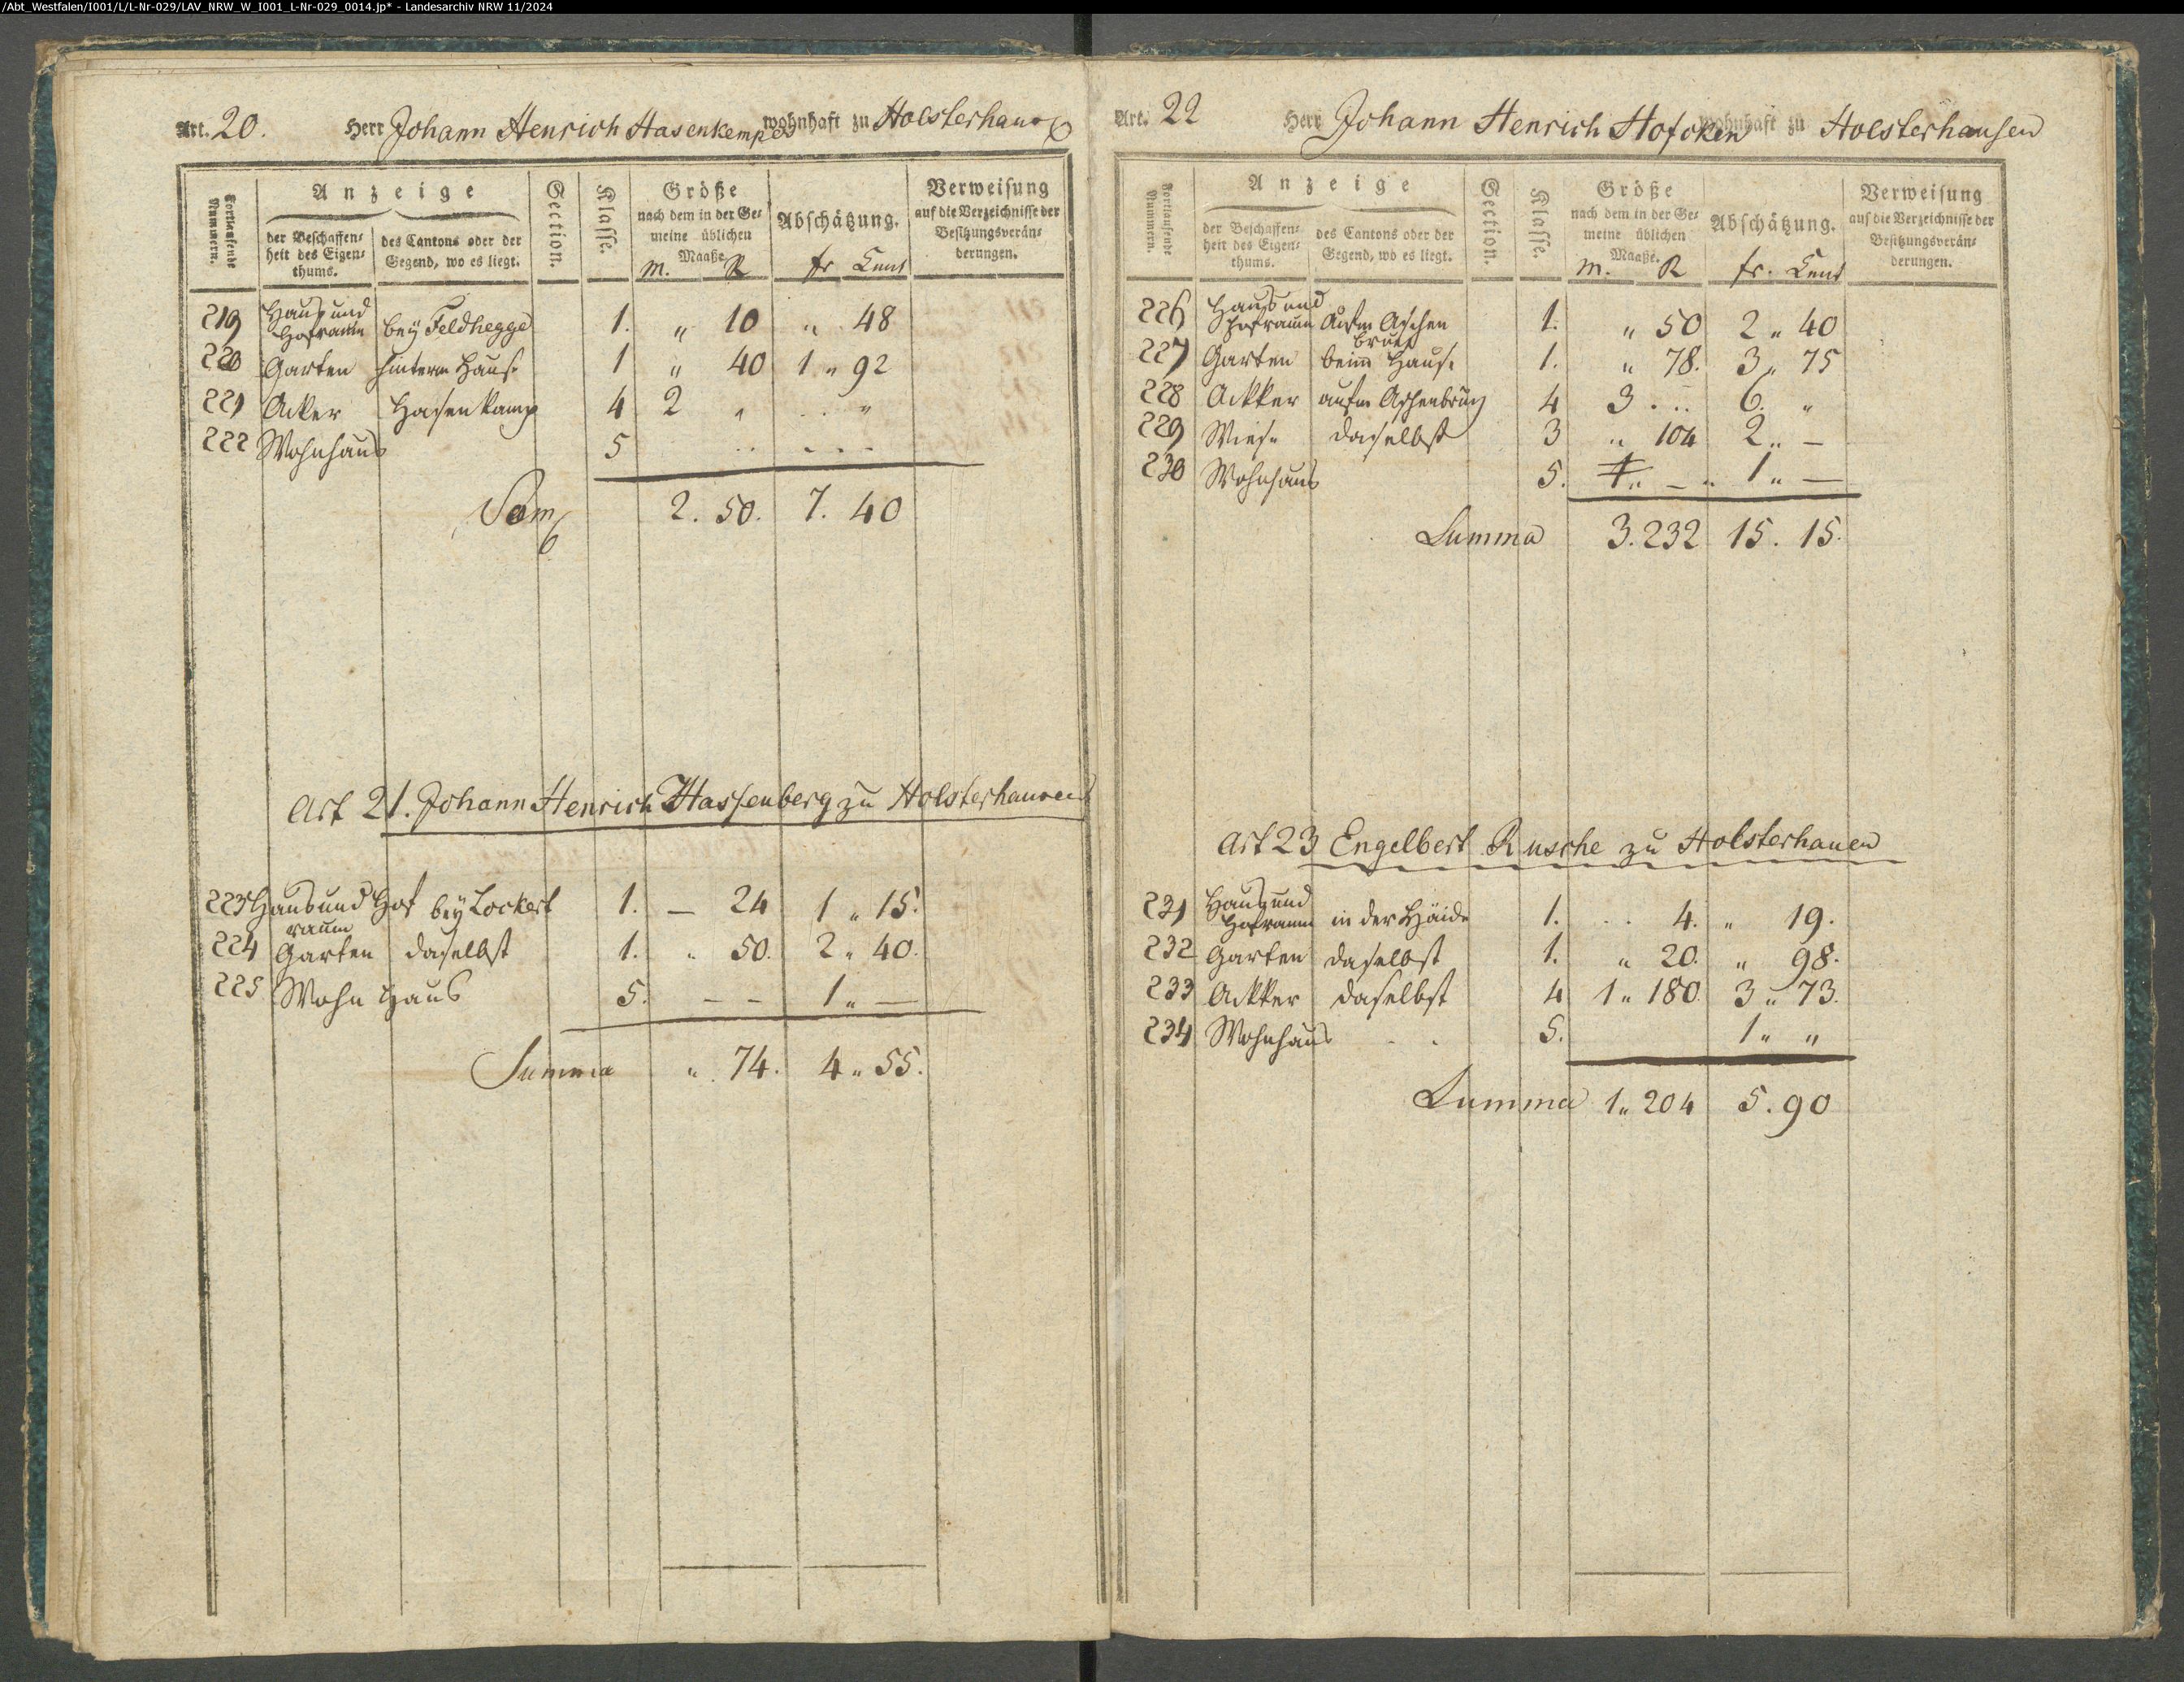 /Abt_Westfalen/I001/L/L-Nr-029/LAV_NRW_W_I001_L-Nr-029_0014.jp* - Landesarchiv NRW 11/2024
Art. 20. Herr Johann Henrich Hasenkemper wohnhaft zu Holsterhaus
Fortlaufende Nummern.
Anzeige
der Beschaffen-
heit des Eigen-
thums.
des Cantons oder der
Gegend, wo es liegt.
Section.
Klasse.
Größe
nach dem in der Ge-
meine üblichen
Maaße.
M. R
Abschätzung.
fr Cent
Verweisung
auf die Verzeichnisse der
Besitzungsverän-
derungen.
219 Haus und Hofraum bey Feldhegge 1. " 10 " 48
220 Garten hinterm Hause 1 " 40 1 " 92
221 Acker Hasenkamp 4 2 " . . "
222 Wohnhaus 5 . . - - -
Sum 2. 50. 7. 40
Art 21. Johann Henrich Hassenberg zu Holsterhausen
223 Haus und Hof raum bey Lockert 1. — 24 1 " 15.
224 Garten daselbst 1. " 50. 2 " 40.
225 Wohn Haus 5. – – 1 " —
Summa " 74. 4 " 55.
Art. 22 Herr Johann Henrich Hofcken wohnhaft zu Holsterhausen
Fortlaufende Nummern.
Anzeige
der Beschaffen-
heit des Eigen-
thums.
des Cantons oder der
Gegend, wo es liegt.
Section.
Klasse.
Größe
nach dem in der Ge-
meine üblichen
Maaße.
M. R
Abschätzung.
fr. Cent
Verweisung
auf die Verzeichnisse der
Besitzungsverän-
derungen.
226 Haus und Hofraum Aufm Aschen bruch 1. " 50 2 " 40
227 Garten beim Hause 1. " 78. 3 " 75
228 Ackker aufm Aschenbruch 4 3 . .. 6. "
229 Wiese daselbst 3 " 104 2 " —
230 Wohnhaus 5. 1 " — 1 " —
Summa 3. 232 15. 15.
Art 23 Engelbert Rusche zu Holsterhauen
231 Haus und Hofraum in der Häide 1. . . 4. " 19.
232 Garten daselbst 1. " 20. " 98.
233 Ackker daselbst 4 1 " 180. 3 " 73.
234 Wohnhaus . . 5. 1 " "
Summa 1 " 204 5. 90